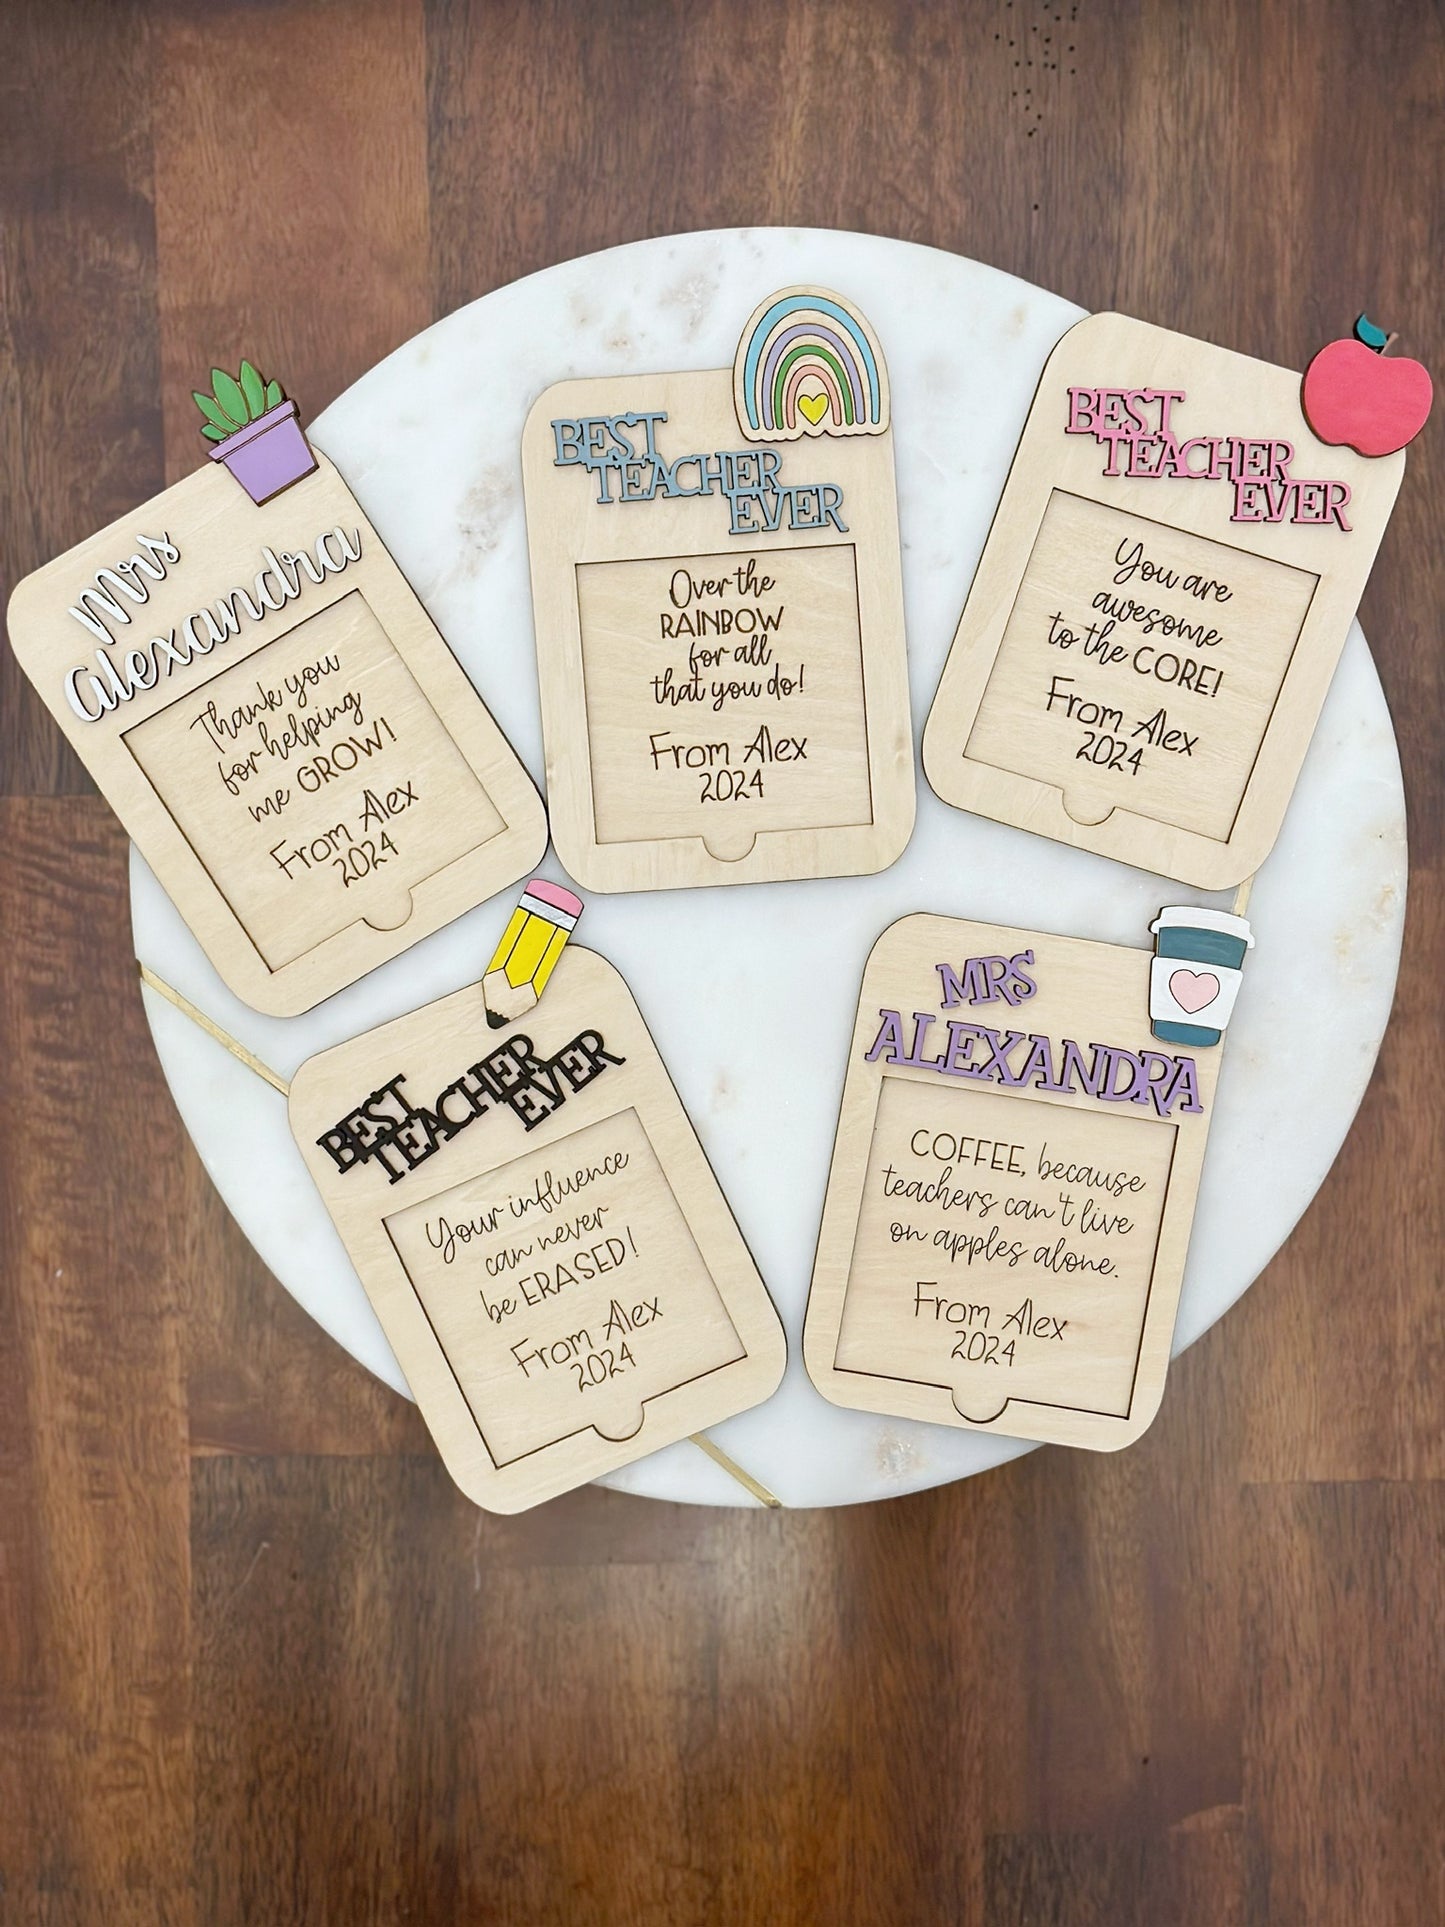 Mrs
Alexandra
Thank you
for helping
me GROW!
From Alex
2024
BEST
TEACHER
EVER
Over the
RAINBOW
for all
that you do!
From Alex
2024
BEST
TEACHER
EVER
You are
awesome
to the CORE!
From Alex
2024
BEST
TEACHER
EVER
Your influence
can never
be ERASED!
From Alex
2024
MRS
ALEXANDRA
COFFEE, because
teachers can't live
on apples alone.
From Alex
2024